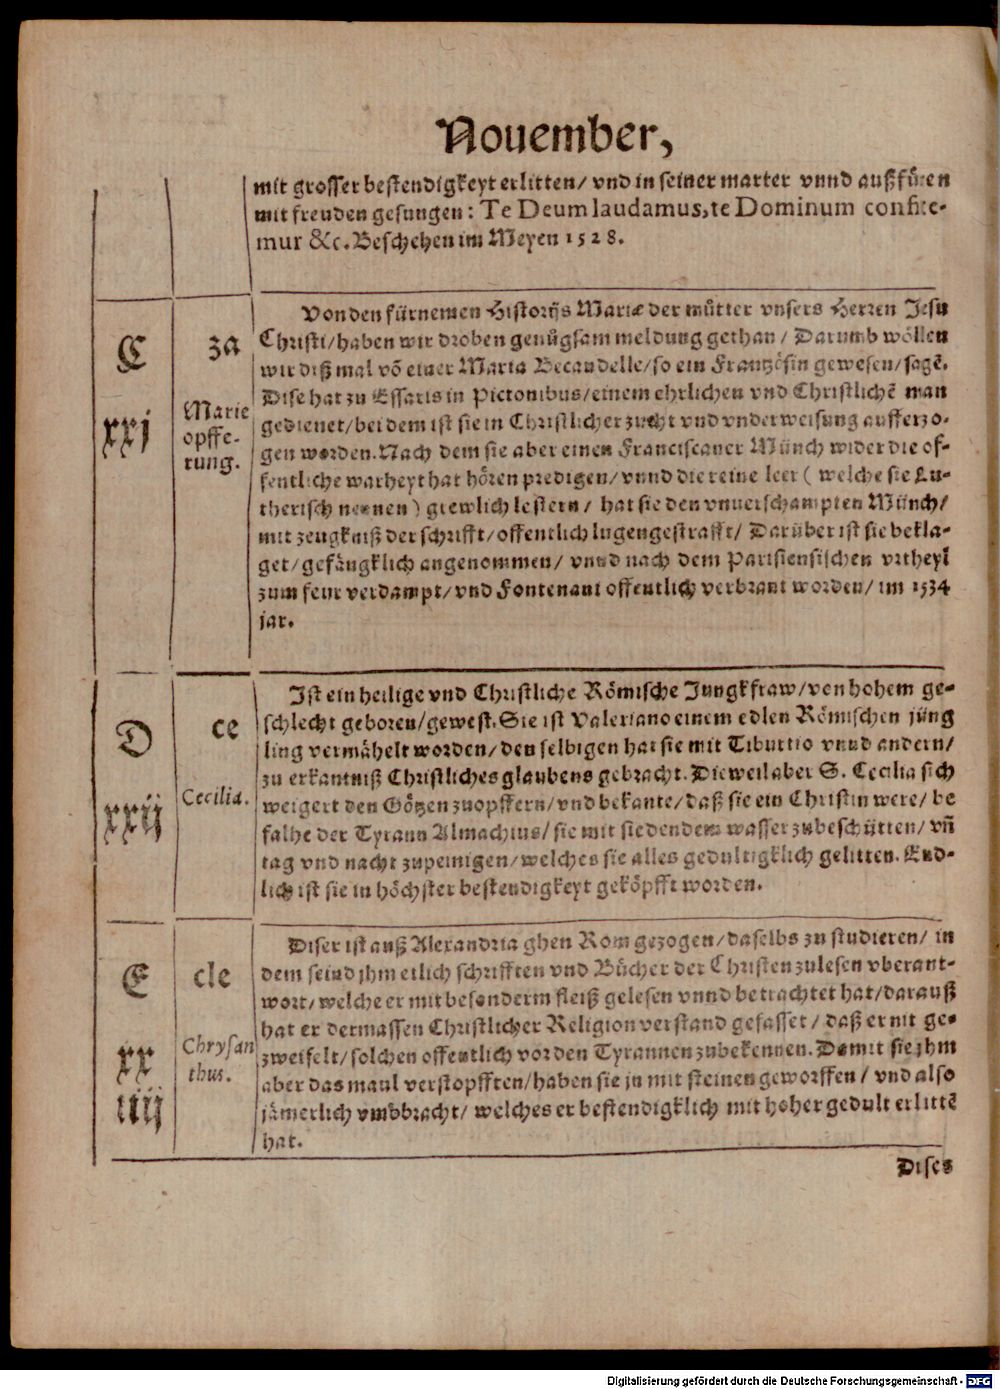 Nouember,
mit grosser bestendigkeyt erlitten/ vnd in seiner marter vnnd außfüren
mit freuden gesungen: Te Deum laudamus, te Dominum confite-
mur &c. Beschehen im Meyen 1528.
C za
xxj
Marie
opffe-
rung.
Von den fürnemen Historijs Mariæ der můtter vnsers Herren Jesu
Christi/haben wir droben genůgsam meldung gethan/ Darumb wöllen
wir diß mal võ einer Maria Becaudelle/so ein Frantzösin gewesen/sagẽ.
Dise hat zu Essaris in Pictonibus/einem ehrlichen vnd Christlichẽ man
gedienet/bei dem ist sie in Christlicher zucht vnd vnderweisung aufferzo-
gen worden. Nach dem sie aber einen Franciscaner Münch wider die of-
fentliche warheyt hat hören predigen/ vnnd die reine leer ( welche sie Lu-
therisch nennen ) grewlich lestern/ hat sie den vnuerschampten Münch/
mit zeugkniß der schrifft/offentlich lugengestrafft/ Darüber ist sie bekla-
get/gefängklich angenommen/ vnnd nach dem Parisiensischen vrtheyl
zum feur verdampt/vnd Fontenani offentlich verbrant worden/ im 1534
jar.
D ce
xxij
Cecilia.
Ist ein heilige vnd Christliche Römische Jungkfraw/von hohem ge-
schlecht geboren/gewest. Sie ist Valeriano einem edlen Römischen jüng
ling vermähelt worden/den selbigen hat sie mit Tiburtio vnnd andern/
zu erkantniß Christliches glaubens gebracht. Dieweil aber S. Cecilia sich
weigert den Götzen zuopffern/vnd bekante/daß sie ein Christin were/ be
falhe der Tyrann Almachius/sie mit siedendem wasser zubeschütten/ vñ
tag vnd nacht zupeinigen/welches sie alles gedultigklich gelitten. End-
lich ist sie in höchster bestendigkeyt geköpfft worden.
E cle
xx
iiij
Chrysan
thus.
Diser ist auß Alexandria ghen Rom gezogen/daselbs zu studieren/ in
dem seind jhm etlich schrifften vnd Bücher der Christen zulesen vberant-
wort/welche er mit besonderm fleiß gelesen vnnd betrachtet hat/darauß
hat er dermassen Christlicher Religion verstand gefasset/ daß er nit ge-
zweifelt/solchen offentlich vor den Tyrannen zubekennen. Damit sie jhm
aber das maul verstopfften/haben sie jn mit steinen geworffen/ vnd also
jämerlich vmbbracht/ welches er bestendigklich mit hoher gedult erlittẽ
hat.
Dises
Digitalisierung gefördert durch die Deutsche Forschungsgemeinschaft - DFG